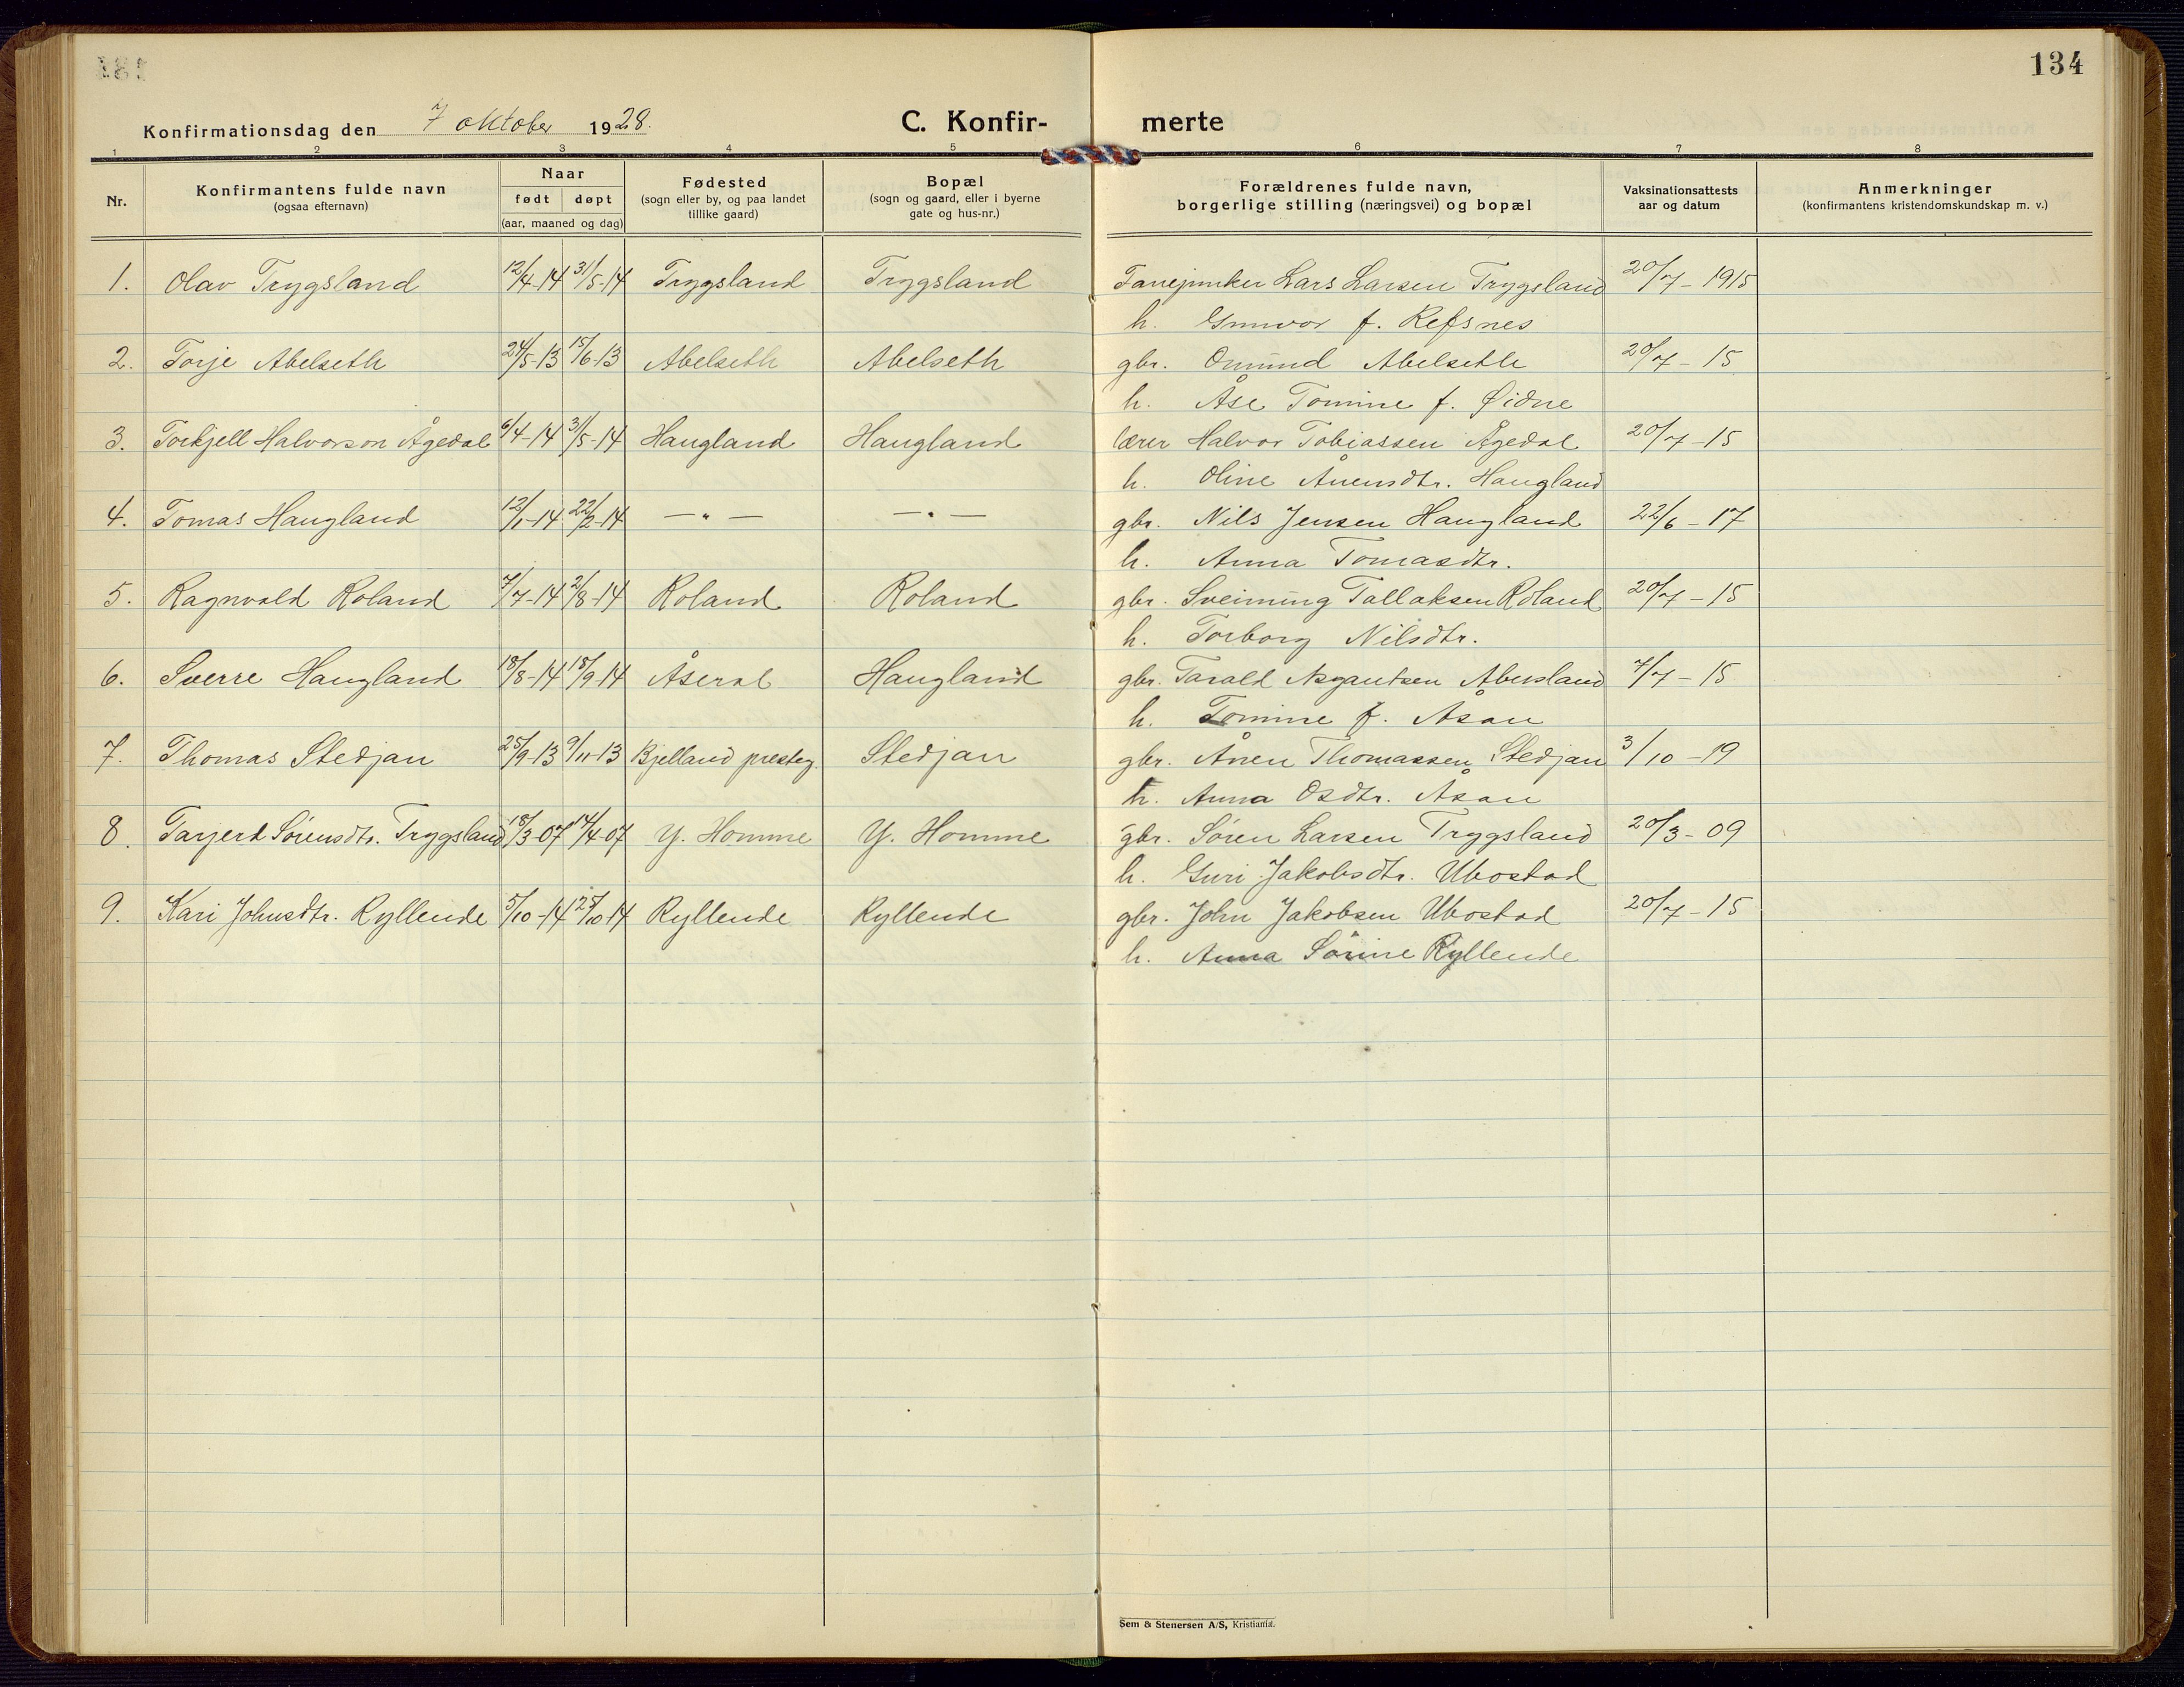 134
Konfirmationsdag den 7 oktober 1928. C. Konfir- merte
1 2 3 4 5 6 7 8
Nr. Konfirmantens fulde navn (ogsaa efternavn) Naar født døpt (aar, maaned og dag) Fødested (sogn eller by, og paa landet tillike gaard) Bopæl (sogn og gaard, eller i byerne gate og hus-nr.) Forældrenes fulde navn, borgerlige stilling (næringsvei) og bopæl Vaksinationsattests aar og datum Anmerkninger (konfirmantens kristendomskundskap m. v.)
1. Olav Trygsland 12/4-14 31/5-14 Trygsland Trygsland Fanejunker Lars Larsen Trygsland 20/7-1915
h. Gunvor f. Refsnes
2. Torje Abelseth 24/5-13 15/6-13 Abelseth Abelseth gbr. Omund Abelseth 20/7-15
h. Åse Tomine f. Øidne
3. Torkjell Halvorson Ågedal 6/4-14 31/5-14 Haugland Haugland lærer Halvor Tobiassen Ågedal 20/7-15
h. Oline Ånensdtr. Haugland
4. Tomas Haugland 12/1-14 22/2-14 — " — — " — gbr. Nils Jensen Haugland 22/6-17
h. Anna Tomasdtr.
5. Ragnvald Roland 7/7-14 2/8-14 Roland Roland gbr. Sveinung Tallaksen Roland 20/7-15
h. Torborg Nilsdtr.
6. Sverre Haugland 18/8-14 18/9-14 Åseral Haugland gbr. Tarald Asgautsen Åbusland 7/7-15
h. Tomine f. Åsan
7. Thomas Stedjan 25/9-13 9/11-13 Bjelland presteg. Stedjan gbr. Ånen Thomassen Stedjan 3/10-19
h. Anna Osdtr. Åsan
8. Tarjerd Sørensdtr. Trygsland 18/3-07 14/4-07 Y. Homme Y. Homme gbr. Søren Larsen Trygsland 20/3-09
h. Guri Jakobsdtr. Ubostad
9. Kari Johnsdtr. Ryllende 5/10-14 25/10-14 Ryllende Ryllende gbr. John Jakobsen Ubostad 20/7-15
h. Anna Sørine Ryllende
Sem & Stenersen A/S, Kristiania.